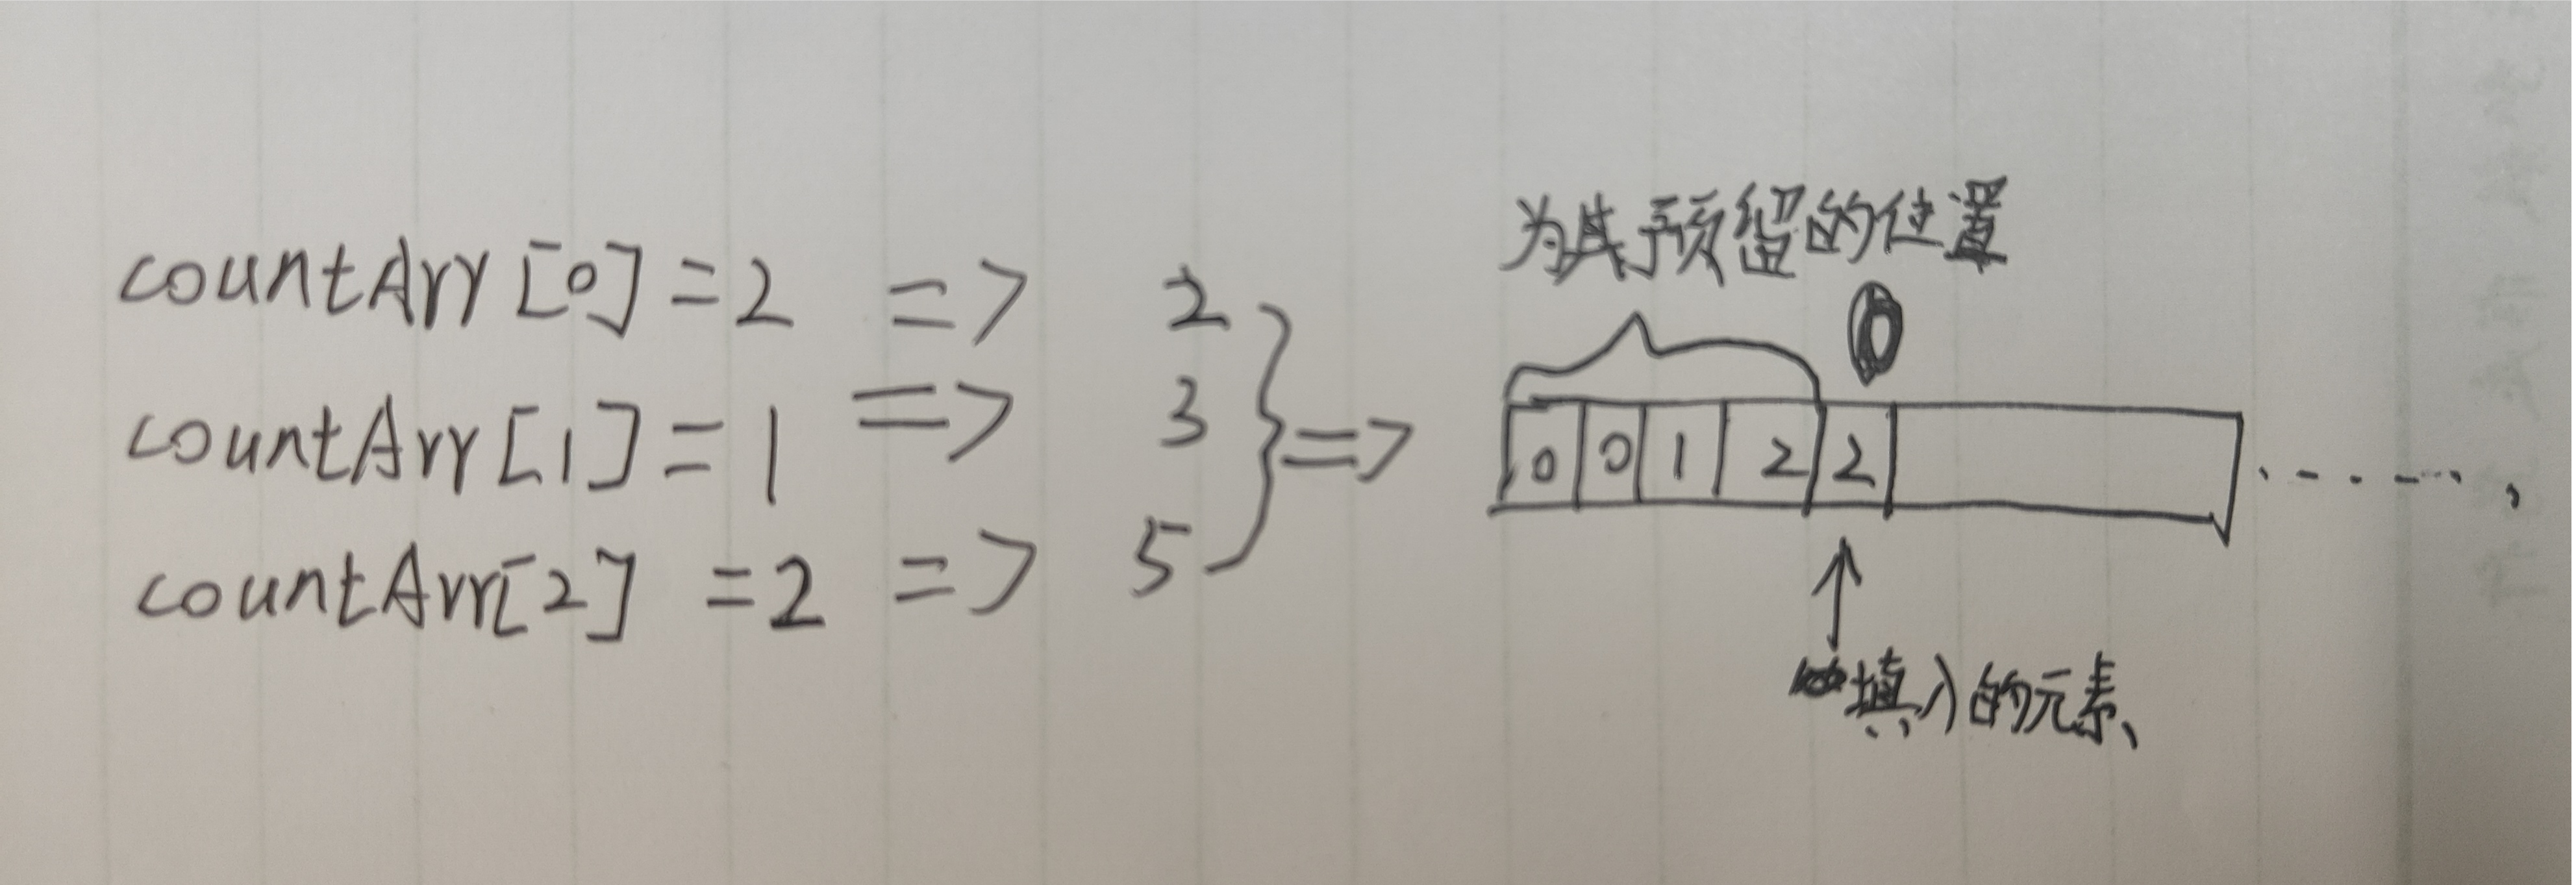 为其预留的位置
countArr[0]=2 => 2
countArr[1]=1 => 3
countArr[2] =2 => 5
=>
0 0 1 2 2 ......
填入的元素